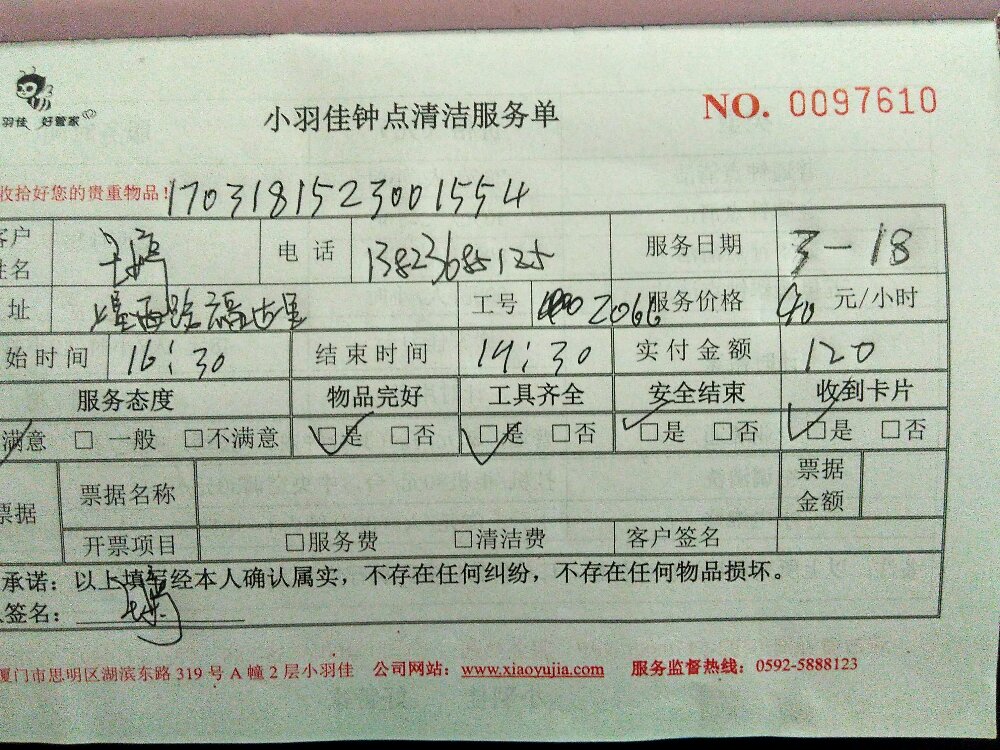 羽佳 好管家
小羽佳钟点清洁服务单
NO. 0097610
收拾好您的贵重物品! 1703181523001554
客户姓名 电话 13823685125 服务日期 3-18
址 工号 2066 服务价格 40 元/小时
始时间 16:30 结束时间 19:30 实付金额 120
服务态度 物品完好 工具齐全 安全结束 收到卡片
满意 □ 一般 □不满意 □是 □否 □是 □否 □是 □否 □是 □否
票据 票据名称 票据金额
开票项目 □服务费 □清洁费 客户签名
承诺:以上填写经本人确认属实,不存在任何纠纷,不存在任何物品损坏。
签名:
厦门市思明区湖滨东路 319 号 A 幢 2 层小羽佳 公司网站:www.xiaoyujia.com 服务监督热线:0592-5888123